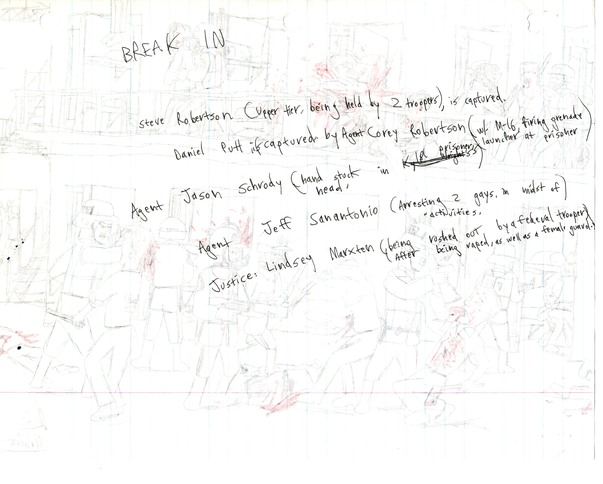 BREAK IN
Steve Robertson (Upper tier, being held by 2 troopers), is captured.
Daniel Putt is captured by Agent Corey Robertson (w/ M-16, firing grenade
launcher at prisoner)
Agent Jason Schrody (hand stuck in prisoner's
head,
Agent Jeff Sanantonio (Arresting 2 gays, in midst of
"activities.
Justice: Lindsey Marxten (being rushed out by a federal trooper)
After being raped, as well as a female guard.